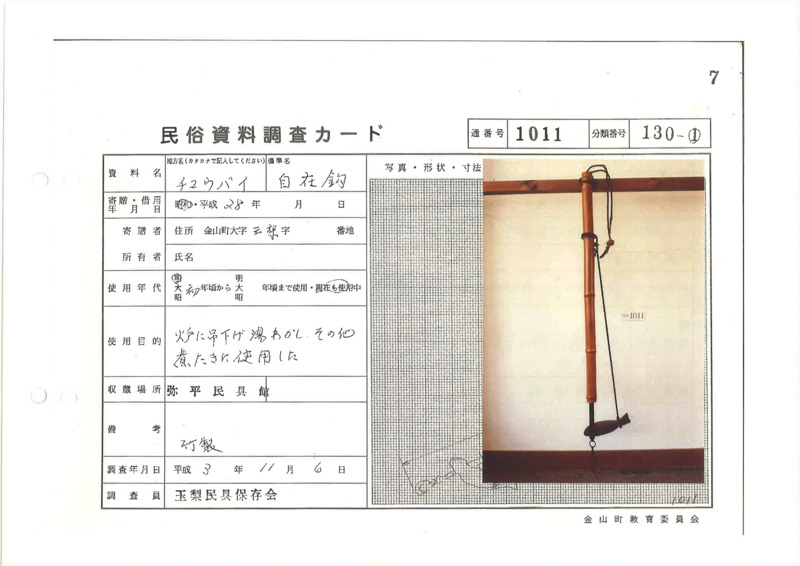 7
民俗資料調査カード
通番号 1011 分類番号 130-①
資料名 地方名(カタカナで記入してください) チユウバイ 標準名 自在鈎
写真・形状・寸法
寄贈・借用年月日 昭和・平成 28 年 月 日
寄贈者 住所 金山町大字 玉梨 字 番地
所有者 氏名
使用年代 明大昭 初 年頃から 明大昭 年頃まで使用・現在も使用中
使用目的 炉に吊下げ湯わかし、その他
煮たきに使用した
収蔵場所 弥平民具館
備考 竹製
調査年月日 平成 3 年 11 月 6 日
調査員 玉梨民具保存会
1011
1011
金山町教育委員会